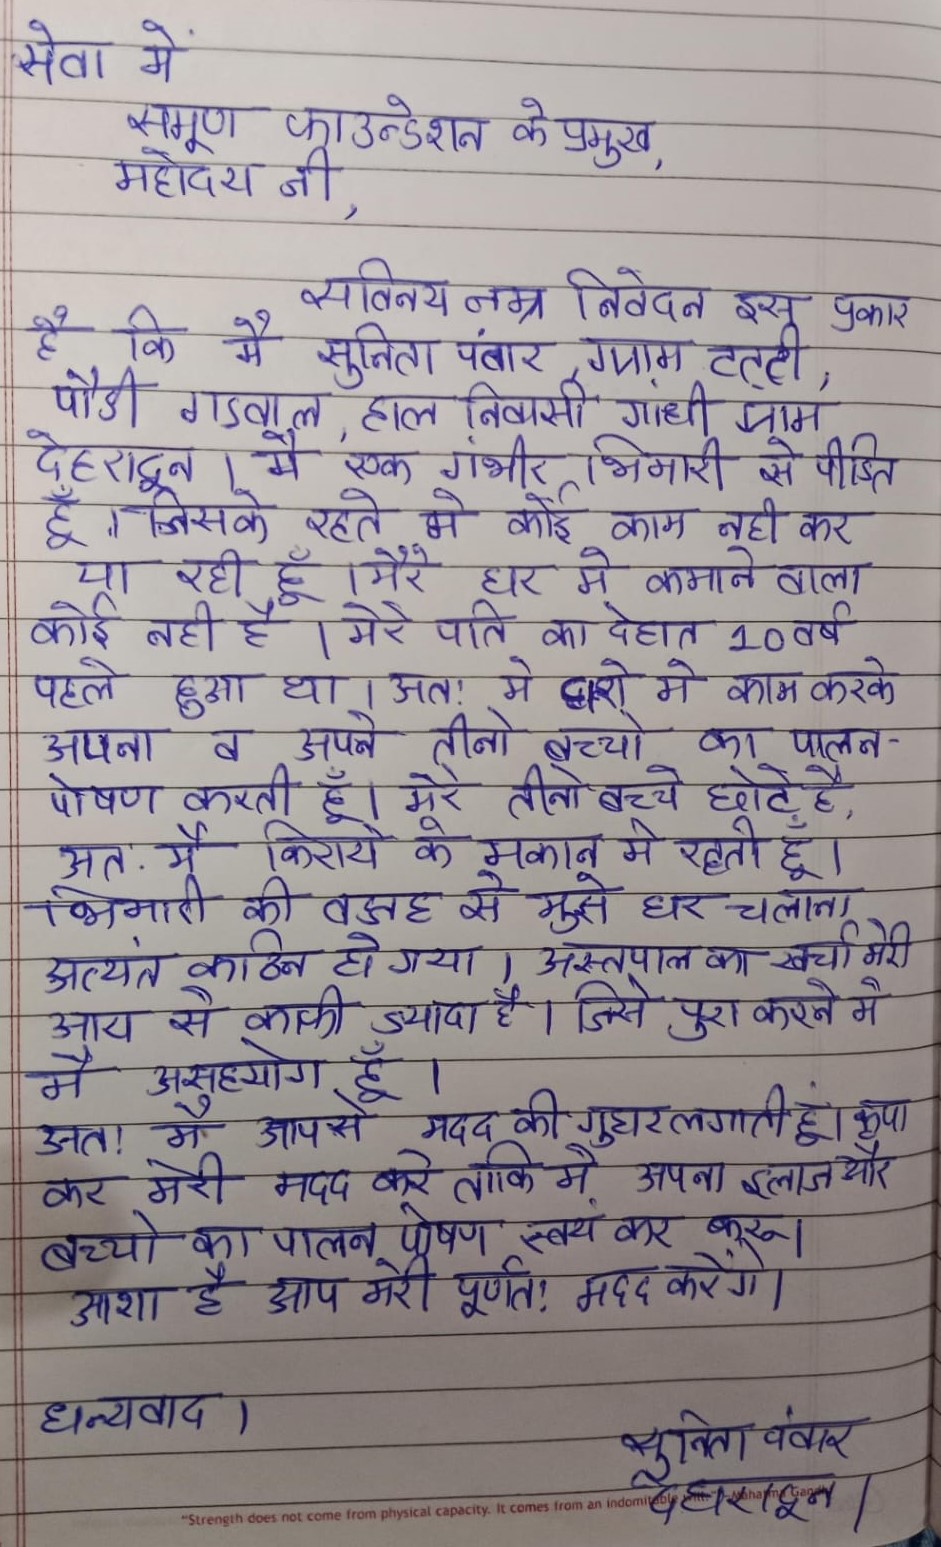 सेवा में
समूण फाउन्डेशन के प्रमुख,
महोदय जी,
सविनय नम्र निवेदन इस प्रकार
है कि मै सुनिता पंवार, ग्राम टट्टी,
पौडी गडवाल, हाल निवासी गांधी ग्राम
देहरादून। मै एक गंभीर भिमारी से पीडित
हूँ। जिसके रहते मे कोई काम नही कर
पा रही हूँ। मेरे घर मे कमाने वाला
कोई नही है। मेरे पति का देहात 10 वर्ष
पहले हुआ था। अत! मे घरो मे काम करके
अपना व अपने तीनो बच्चो का पालन-
पोषण करती हूँ। मेरे तीनो बच्चे छोटे है,
अत. मै किराये के मकान मे रहती हूँ।
भिमारी की वजह से मुझे घर चलाना
अत्यंत कठिन हो गया। अस्तपाल का खर्चा मेरी
आय से काफी ज्यादा है। जिसे पुरा करने मे
मै असहयोग हूँ।
अत! मै आपसे मदद की गुहार लगाती हूं। कृपा
कर मेरी मदद करे ताकि मै अपना इलाज और
बच्चो का पालन पोषण स्वयं कर करू।
आशा है आप मेरी पूर्णत! मदद करेंगे।
धन्यवाद।
सुनिता पंवार
देहरादून।
"Strength does not come from physical capacity. It comes from an indomitable will." - Mahatma Gandhi